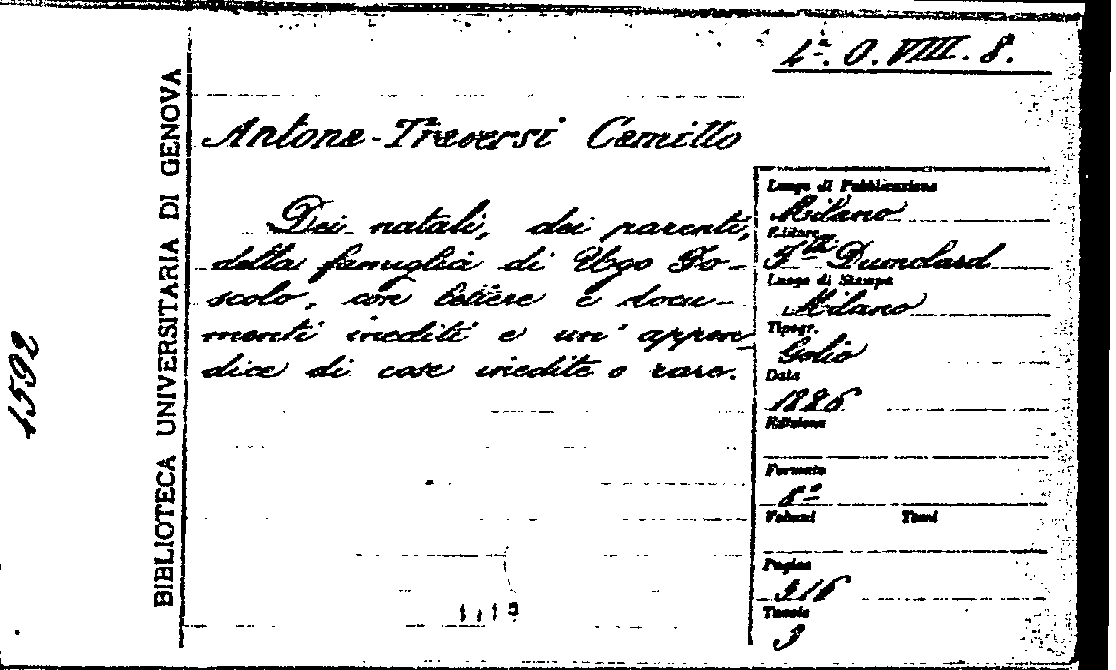 1ª. O. VIII. 8.
BIBLIOTECA UNIVERSITARIA DI GENOVA
1592
Antona-Traversi Camillo
Dei natali, dei parenti,
della famiglia di Ugo Fo-
scolo, con lettere e docu-
menti inediti e un' appen
dice di cose inedite o rare.
Luogo di Pubblicazione
Milano
Editore
F.lli Dumolard
Luogo di Stampa
Milano
Tipogr.
Golio
Data
1886
Edizione
Formato
8º
Volumi Tomi
Pagine
316
Tavole
3